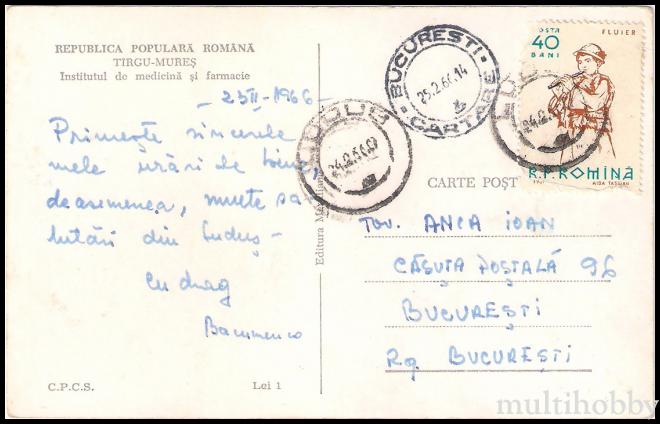 REPUBLICA POPULARĂ ROMÂNĂ
TIRGU-MUREȘ
Institutul de medicină și farmacie
- 23 II -1966 -
Primește sincerele
mele urări de bine,
deasemenea, multe sa-
lutări din Luduș -
Cu drag
C.P.C.S.
Lei 1
Editura
BUCUREȘTI
25.2.66.14
CARTARE
LUDUȘ
24.2.
24.2.
POSTA
40
BANI
FLUIER
R.P.ROMINĂ
AIDA TASGIAN
CARTE POȘT
Tov. ANCA IOAN
CĂSUȚA POȘTALĂ 96
BUCUREȘTI
Rg. BUCUREȘTI
multihobby